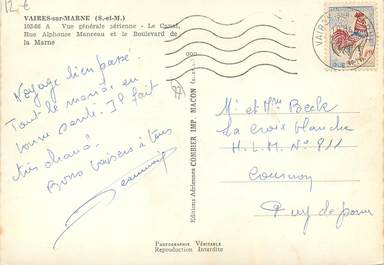 12 €
VAIRES-sur-MARNE (S.-et-M.)
103-86 A Vue générale aérienne - Le Canal,
Rue Alphonse Manceau et le Boulevard de
la Marne
Voyage bien passé
Tout le monde en
bonne santé. Il fait
très chaud.
Bons baisers à tous
77
Editions Aériennes COMBIER IMP. MACON
VAIRES
Mr et Mme Beck
La croix blanche
H.L.M. N° 811
Cournon
Puy de Dome
PHOTOGRAPHIE VÉRITABLE
Reproduction Interdite